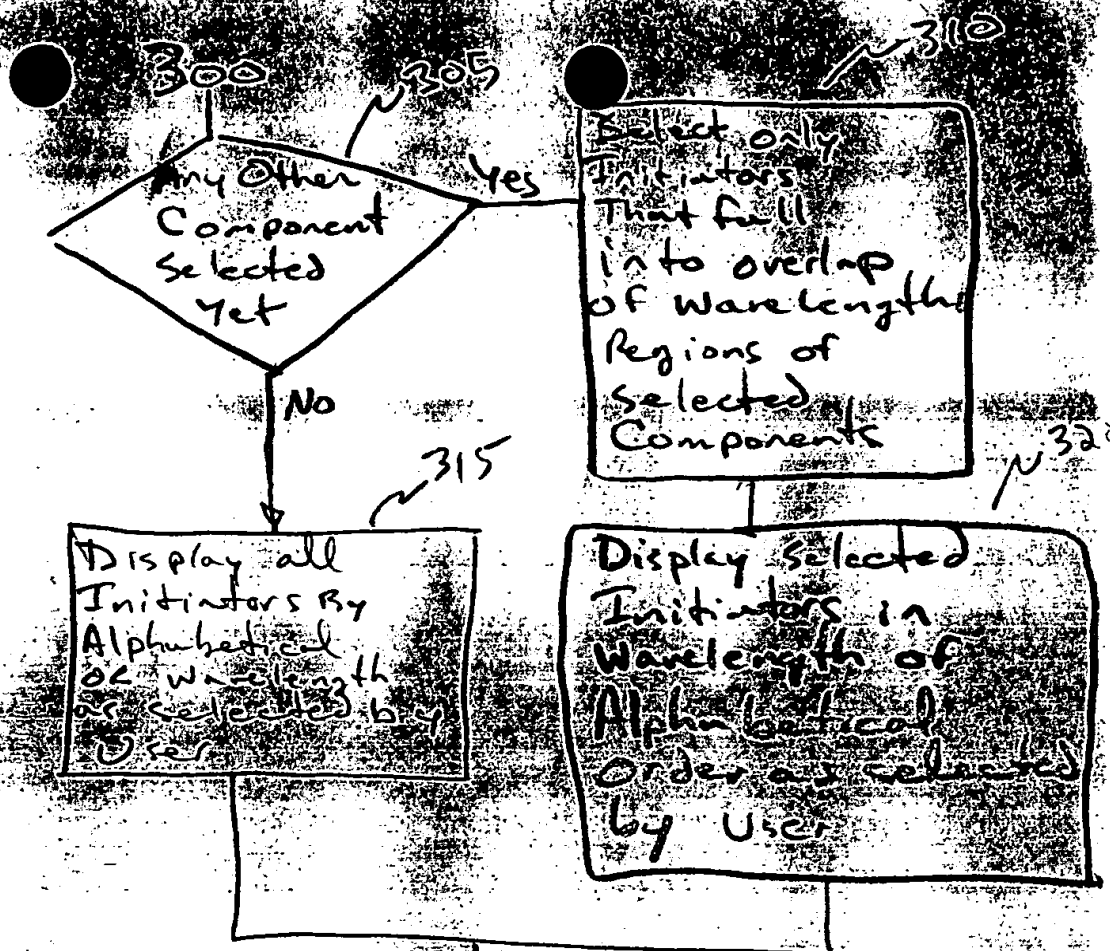 300
305
Any Other
Component
Selected
Yet
Yes
No
310
Select only
Initiators
That fall
into overlap
of wavelengths
Regions of
selected
Components
315
Display all
Initiators By
Alphabetical
or wavelength
as selected by
User
32
Display selected
Initiators in
Wavelength of
Alphabetical
Order as selected
by User